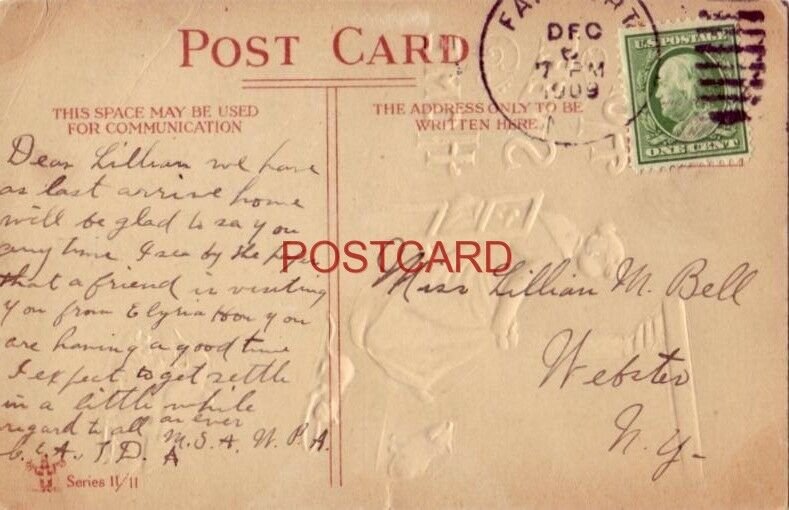 POST CARD
DEC
7 PM
1909
U.S. POSTAGE
ONE CENT
THIS SPACE MAY BE USED
FOR COMMUNICATION
THE ADDRESS ONLY TO BE
WRITTEN HERE
Dear Lillian we have
as last arrive home
will be glad to say you
any time I see by the
that a friend is visiting
you from Elyria you
are having a good time
I expect to get settle
in a little while
regard to all as ever
M.S.A. W.P.A.
POSTCARD
Miss Lillian M. Bell
Webster
N.Y.
Series II/II